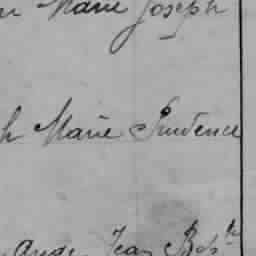 Marie Joseph
h Marie Prudence
Ange Jean Bte